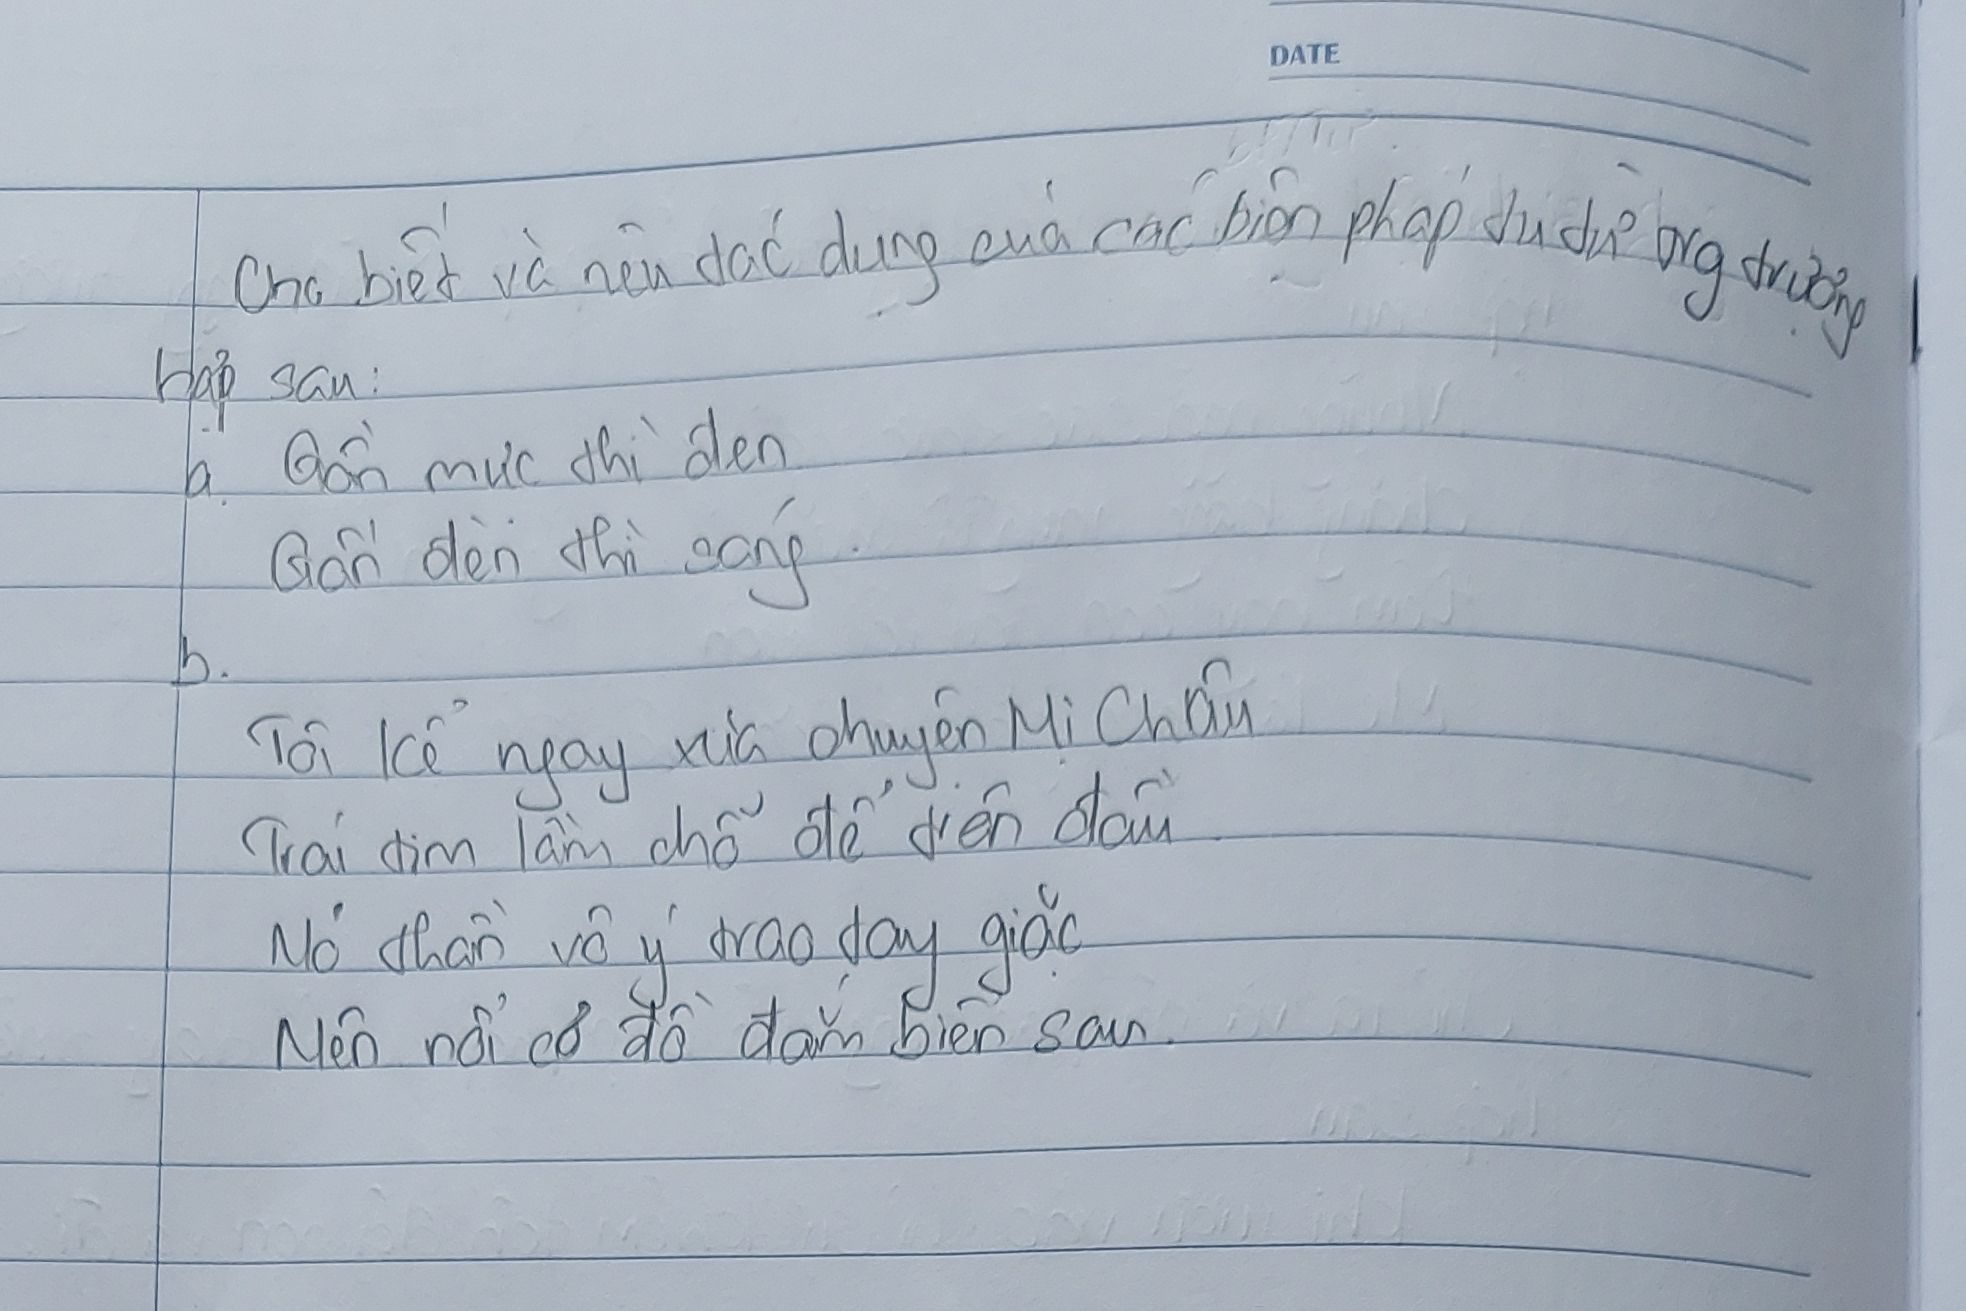 DATE
Cho biết và nêu tác dụng của các biện pháp tu từ trong trường
Hợp sau:
a. Gần mực thì đen
Gần đèn thì sáng.
b.
Tôi kể ngày xưa chuyện Mị Châu
Trái tim lầm chỗ để trên đầu
Nỏ thần vô ý trao tay giặc
Nên nỗi cơ đồ đắm biển sâu.